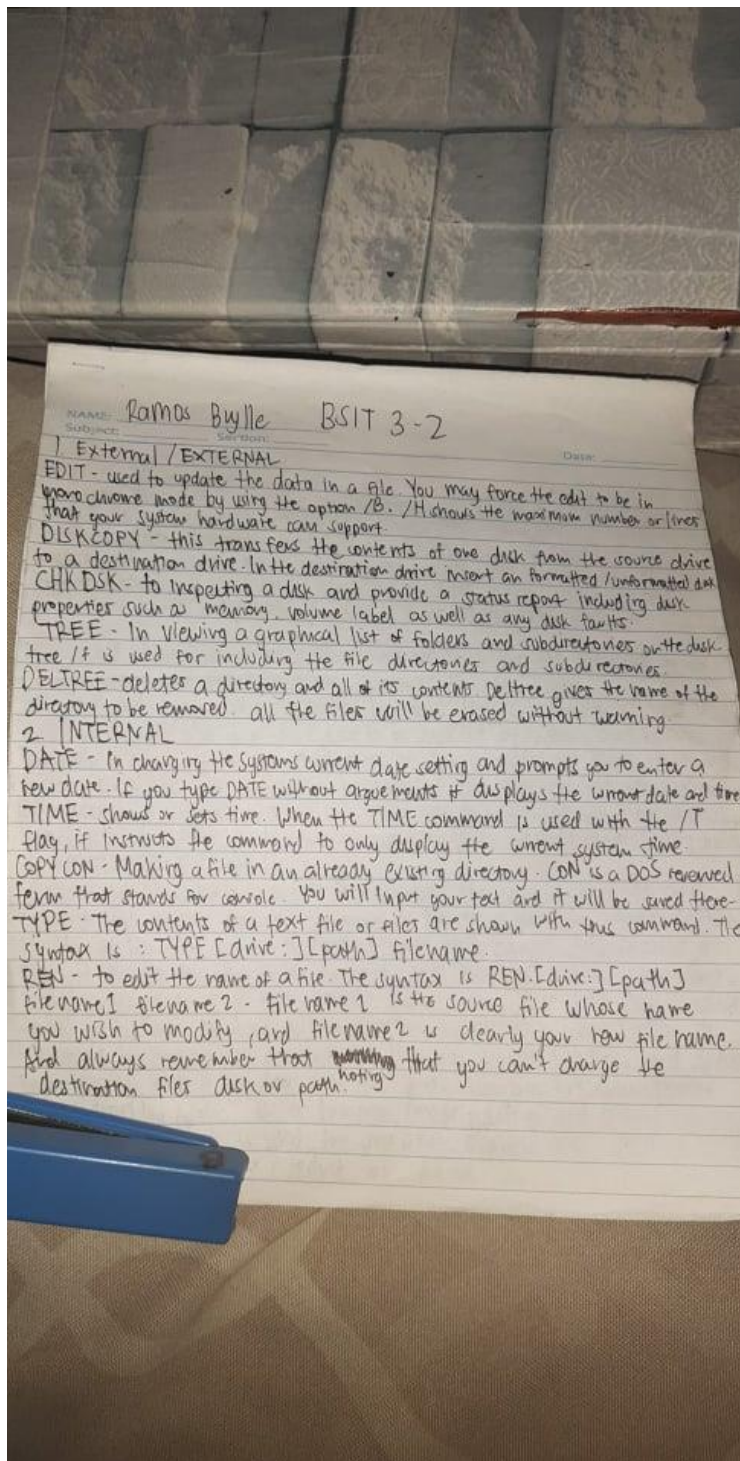 NAME: Ramos Brylle BSIT 3-2
Subject: Section: Date:
1. External / EXTERNAL
EDIT - used to update the data in a file. You may force the edit to be in
monochrome mode by using the option /B. /H shows the maximum number or lines
that your system hardware can support.
DISKCOPY - this transfers the contents of one disk from the source drive
to a destination drive. In the destination drive insert an formatted /unformatted disk
CHKDSK - to inspecting a disk and provide a status report including disk
properties such as memory, volume label as well as any disk faults.
TREE - In viewing a graphical list of folders and subdirectories on the disk
tree /f is used for including the file directories and subdirectories.
DELTREE - deletes a directory and all of its contents. Deltree gives the name of the
directory to be removed. all the files will be erased without warning.
2 INTERNAL
DATE - In changing the systems current date setting and prompts you to enter a
new date. If you type DATE without arguements it displays the current date and time
TIME - shows or sets time. When the TIME command is used with the /T
flag, it instructs the command to only display the current system time.
COPY CON - Making a file in an already existing directory. CON is a DOS reserved
term that stands for console. You will input your text and it will be saved there-
TYPE - The contents of a text file or files are shown with this command. The
syntax is : TYPE [drive:][path] filename.
REN - to edit the name of a file. The syntax is REN.[drive:][path]
filename1 filename2 - filename1 is the source file whose name
you wish to modify, and filename2 is clearly your new file name.
And always remember that noting that you can't change the
destination files disk or path.